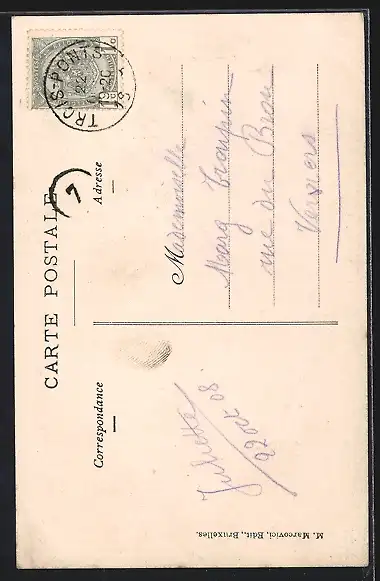 CARTE POSTALE
Correspondance
Adresse
TROIS-PONTS
22
19-20
Juliette
22 Oct 08
Mademoiselle
Marg
rue du Brou
Verviers
M. Marcovici, Edit., Bruxelles.